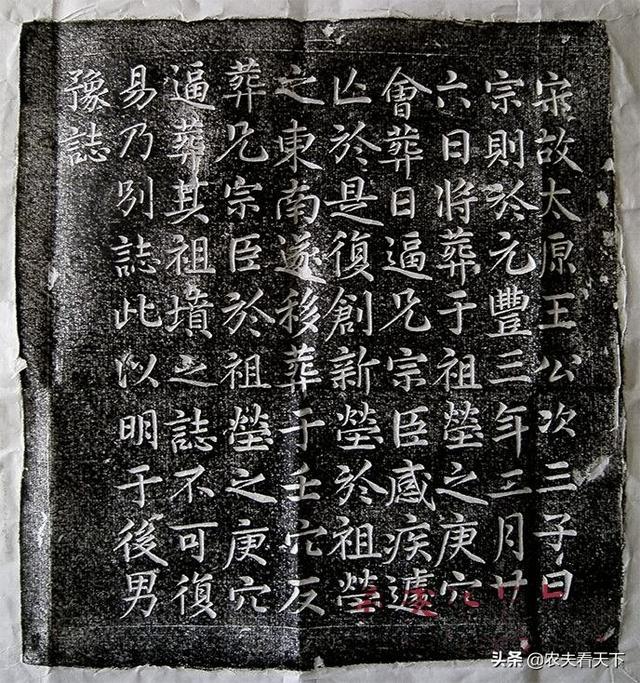 宋故太原王公次三子曰
宗則於元豐三年二月廿
六日将葬于祖塋之庚穴
會葬日逼兄宗臣感疾遽
亾於是復創新塋於祖塋
之東南遂移葬于壬穴反
葬兄宗臣於祖塋之庚穴
逼葬其祖墳之誌不可復
易乃別誌此以明于後男
豫誌
头条 @农夫看天下